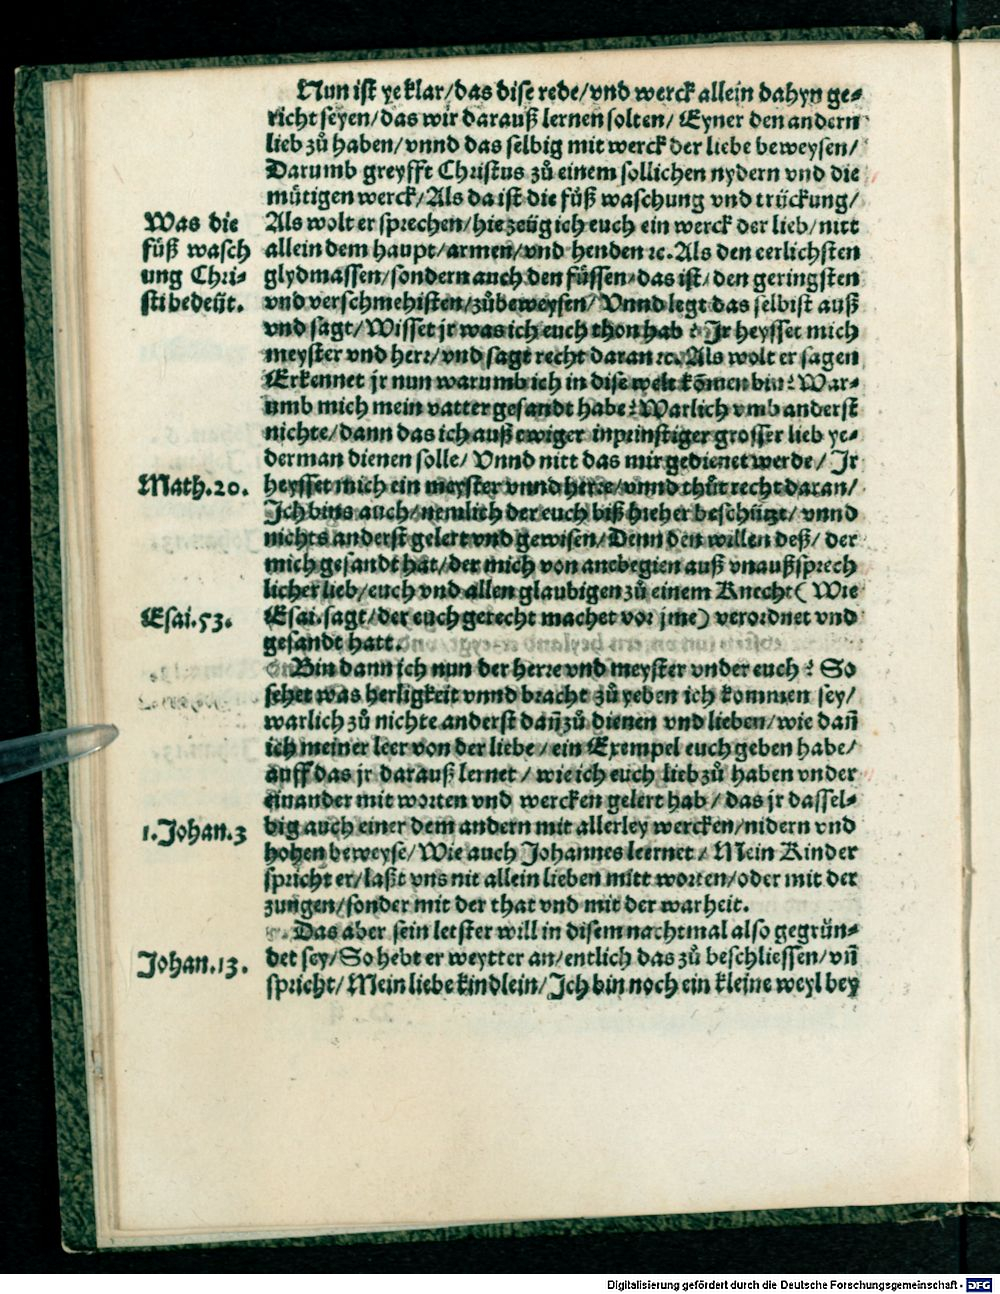 Nun ist ye klar/das dise rede/vnd werck allein dahyn ge-
richt seyen/das wir darauß lernen solten/ Eyner den andern
lieb zů haben/ vnnd das selbig mit werck der liebe beweysen/
Darumb greyfft Christus zů einem sollichen nydern vnd die
mütigen werck/Als da ist die füß waschung vnd trückung/
Was die
füß wasch
ung Chri-
sti bedeüt.
Als wolt er sprechen/hie zeüg ich euch ein werck der lieb/nitt
allein dem haupt/armen/vnd henden ꝛc. Als den eerlichsten
glydmassen/sondern auch den füssen/das ist/den geringsten
vnd verschmehisten/zůbeweysen/ Vnnd legt das selbist auß
vnd sagt/Wisset jr was ich euch thon hab? Ir heysset mich
meyster vnd herr/vnd sagt recht daran ꝛc. Als wolt er sagen
Erkennet jr nun warumb ich in dise welt kōmen bin? War-
umb mich mein vatter gesandt habe? Warlich vmb anderst
nichte/dann das ich auß ewiger inprinstiger grosser lieb ye-
derman dienen solle/ Vnnd nitt das mir gedienet werde/ Ir
Math.20.
heysset mich ein meyster vnnd herre/vnnd thůt recht daran/
Ich bins auch/nemlich der euch biß hieher beschützt/ vnnd
nichts anderst gelert vnd gewisen/Denn den willen deß/ der
mich gesandt hat/der mich von anebegien auß vnaußsprech
licher lieb/euch vnd allen glaubigen zů einem Knecht( Wie
Esai.53.
Esai. sagt/der euch gerecht machet vor jme) verordnet vnd
gesandt hatt.
Bin dann ich nun der herre vnd meyster vnder euch? So
sehet was herligkeit vnnd bracht zů yeben ich kommen sey/
warlich zů nichte anderst dañ zů dienen vnd lieben/wie dañ
ich meiner leer von der liebe/ein Exempel euch geben habe/
auff das jr darauß lernet/wie ich euch lieb zů haben vnder
einander mit worten vnd wercken gelert hab/das jr dassel-
1.Johan.3
big auch einer dem andern mit allerley wercken/nidern vnd
hohen beweyse/Wie auch Johannes leernet/ Mein Kinder
spricht er/laßt vns nit allein lieben mitt worten/oder mit der
zungen/sonder mit der that vnd mit der warheit.
Das aber sein letster will in disem nachtmal also gegrün-
Johan.13.
det sey/So hebt er weytter an/entlich das zů beschliessen/vñ
spricht/Mein liebe kindlein/Ich bin noch ein kleine weyl bey
Digitalisierung gefördert durch die Deutsche Forschungsgemeinschaft - DFG